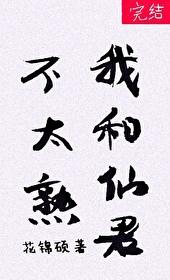 完结
我和仙君
不太熟
花锦硕 著